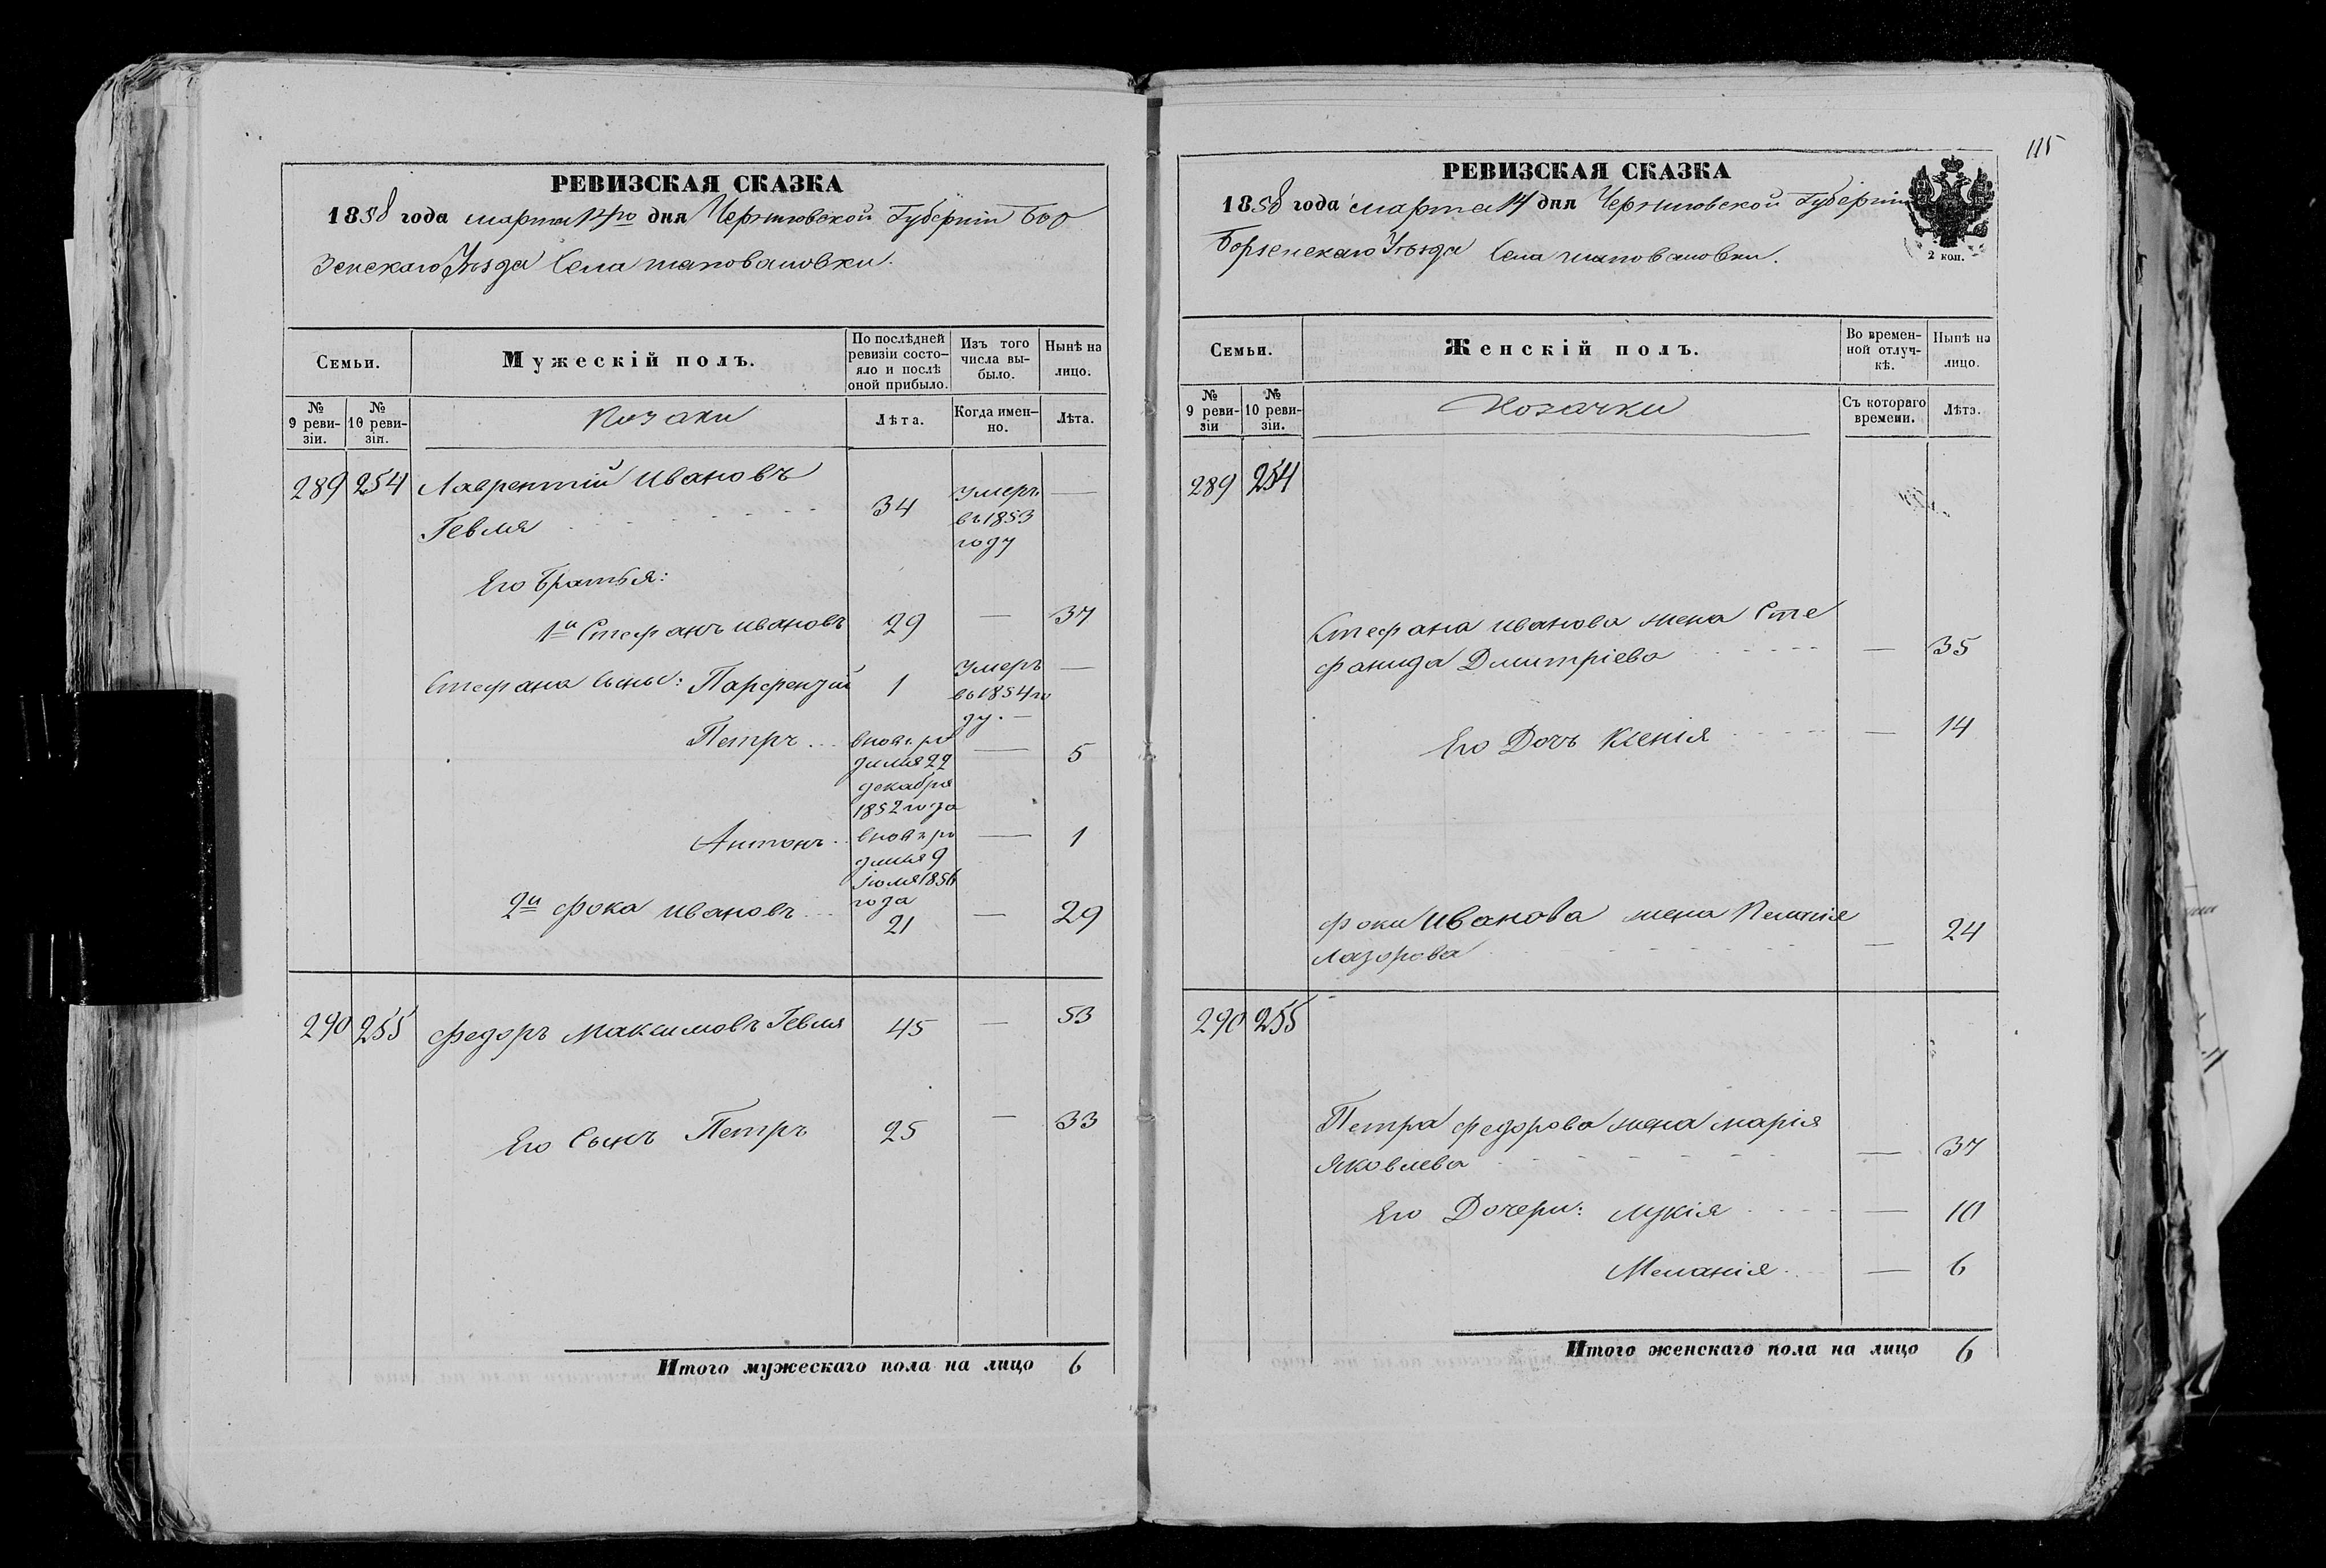 РЕВИЗСКАЯ СКАЗКА
1858 года марта 14го дня Черниговской Губерніи Бор
зенскаго Уѣзда Села шаповаловки.
Семьи.
Мужескій полъ.
По послѣдней ревизіи состояло и послѣ оной прибыло.
Изъ того числа выбыло.
Нынѣ на лицо.
№ 9 ревизіи.
№ 10 ревизіи.
Козаки
Лѣта.
Когда именно.
Лѣта.
289 254 Лаврентій Ивановъ
Гевля 34 Умеръ —
въ 1853
году
Его Братья:
1й Стефанъ Ивановъ 29 — 37
Стефана Сыны: Парфентій 1 Умеръ —
въ 1854 го
ду. —
Петръ вновь ро — 5
дился 22
декабря
1852 года
Антонъ вновь ро — 1
дился 9
Іюля 1856
года
2й Фока Ивановъ 21 — 29
290 255 Федоръ Максимовъ Гевля 45 — 53
Его Сынъ Петръ 25 — 33
Итого мужескаго пола на лицо 6
115
РЕВИЗСКАЯ СКАЗКА
1858 года марта 14 дня Черниговской Губерніи
Борзенскаго Уѣзда Села шаповаловки.
2 коп.
Семьи.
Женскій полъ.
Во временной отлучкѣ.
Нынѣ на лицо.
№ 9 ревизіи
№ 10 ревизіи.
Козачки
Съ котораго времени.
Лѣта.
289 254
Стефана Иванова жена Сте
фанида Дмитріева — 35
Его Дочь Ксенія — 14
Фоки Иванова жена Пелагія
Лазорова — 24
290 255
Петра Федорова жена марія
Яковлева — 37
Его Дочери: Лукія — 10
Меланія — 6
Итого женскаго пола на лицо 6